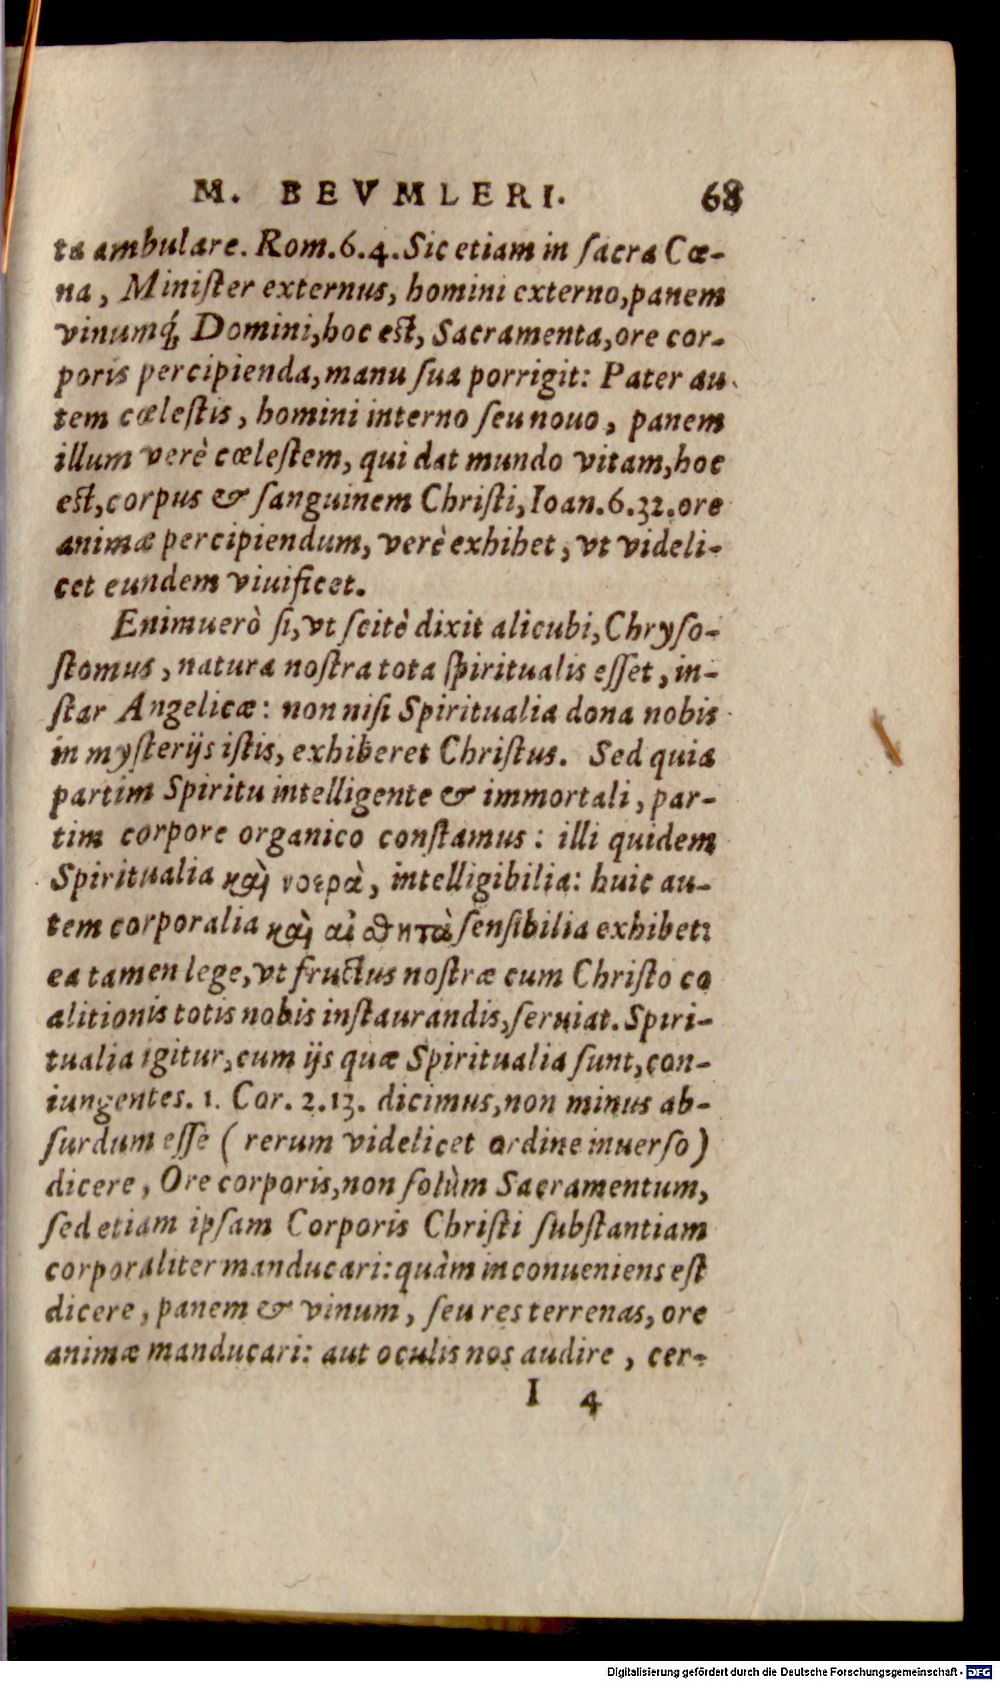 M. BEVMLERI. 68
ta ambulare. Rom. 6. 4. Sic etiam in ſacra Cœ-
na, Miniſter externus, homini externo, panem
vinumq́; Domini, hoc eſt, Sacramenta, ore cor-
poris percipienda, manu ſua porrigit: Pater au-
tem cœleſtis, homini interno ſeu nouo, panem
illum verè cœleſtem, qui dat mundo vitam, hoc
eſt, corpus & ſanguinem Chriſti, Ioan. 6. 32. ore
animæ percipiendum, verè exhibet, vt videli-
cet eundem viuificet.
Enimuerò ſi, vt ſcitè dixit alicubi, Chryſo-
ſtomus, natura noſtra tota ſpiritualis eſſet, in-
ſtar Angelicæ: non niſi Spiritualia dona nobis
in myſterijs iſtis, exhiberet Chriſtus. Sed quia
partim Spiritu intelligente & immortali, par-
tim corpore organico conſtamus: illi quidem
Spiritualia καὶ νοερὰ, intelligibilia: huic au-
tem corporalia καὶ αἰσθητὰ ſenſibilia exhibet:
ea tamen lege, vt fructus noſtræ cum Chriſto co
alitionis totis nobis inſtaurandis, ſeruiat. Spiri-
tualia igitur, cum ijs quæ Spiritualia ſunt, con-
iungentes. 1. Cor. 2. 13. dicimus, non minus ab-
ſurdum eſſe ( rerum videlicet ordine inuerſo )
dicere, Ore corporis, non ſolùm Sacramentum,
ſed etiam ipſam Corporis Chriſti ſubſtantiam
corporaliter manducari: quàm inconueniens eſt
dicere, panem & vinum, ſeu res terrenas, ore
animæ manducari: aut oculis nos audire, cer-
I 4
Digitalisierung gefördert durch die Deutsche Forschungsgemeinschaft - DFG